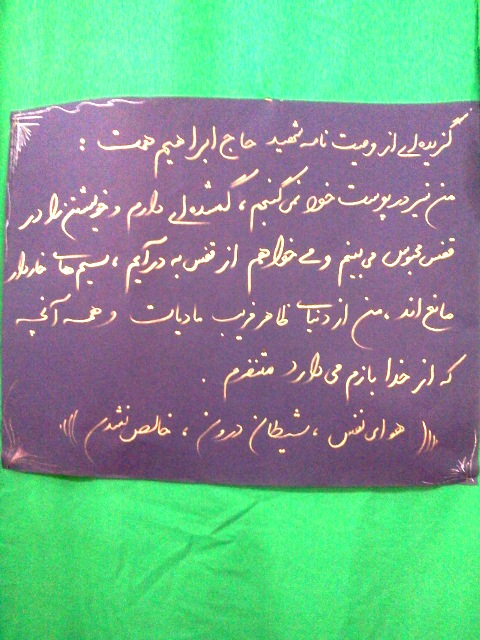 گزیده‌ای از وصیت نامه شهید حاج ابراهیم همت :
من نیز در پوست خود نمی گنجم ، گمشده ای دارم و خویشتن را در
قفس محبوس می بینم و می خواهم از قفس به در آیم ، سیم های خاردار
مانع اند ، من از دنیای ظاهر فریب مادیات و همه آنچه
که از خدا بازم می دارد متنفرم .
((( هوای نفس ، شیطان درون ، خالص نشدن )))